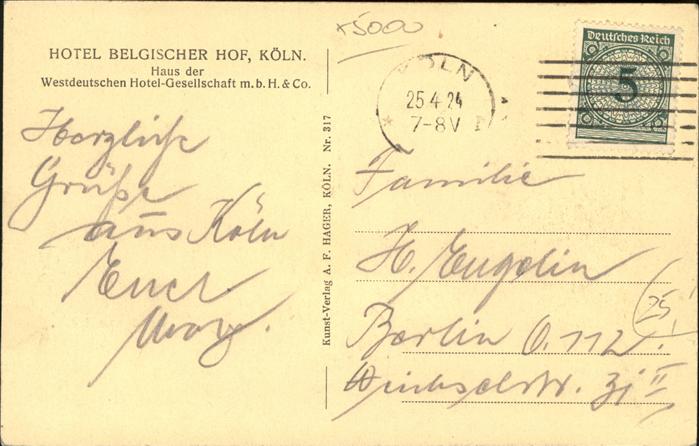 HOTEL BELGISCHER HOF, KÖLN.
Haus der
Westdeutschen Hotel-Gesellschaft m. b. H. & Co.
Herzliche
Grüße
aus Köln
Euer
Kunst-Verlag A. F. HAGER, KÖLN. Nr. 317
x5000
KÖLN
25 4 24
7-8V
Deutsches Reich
5
Familie
H. Engelin
Berlin O. 112.
II
25